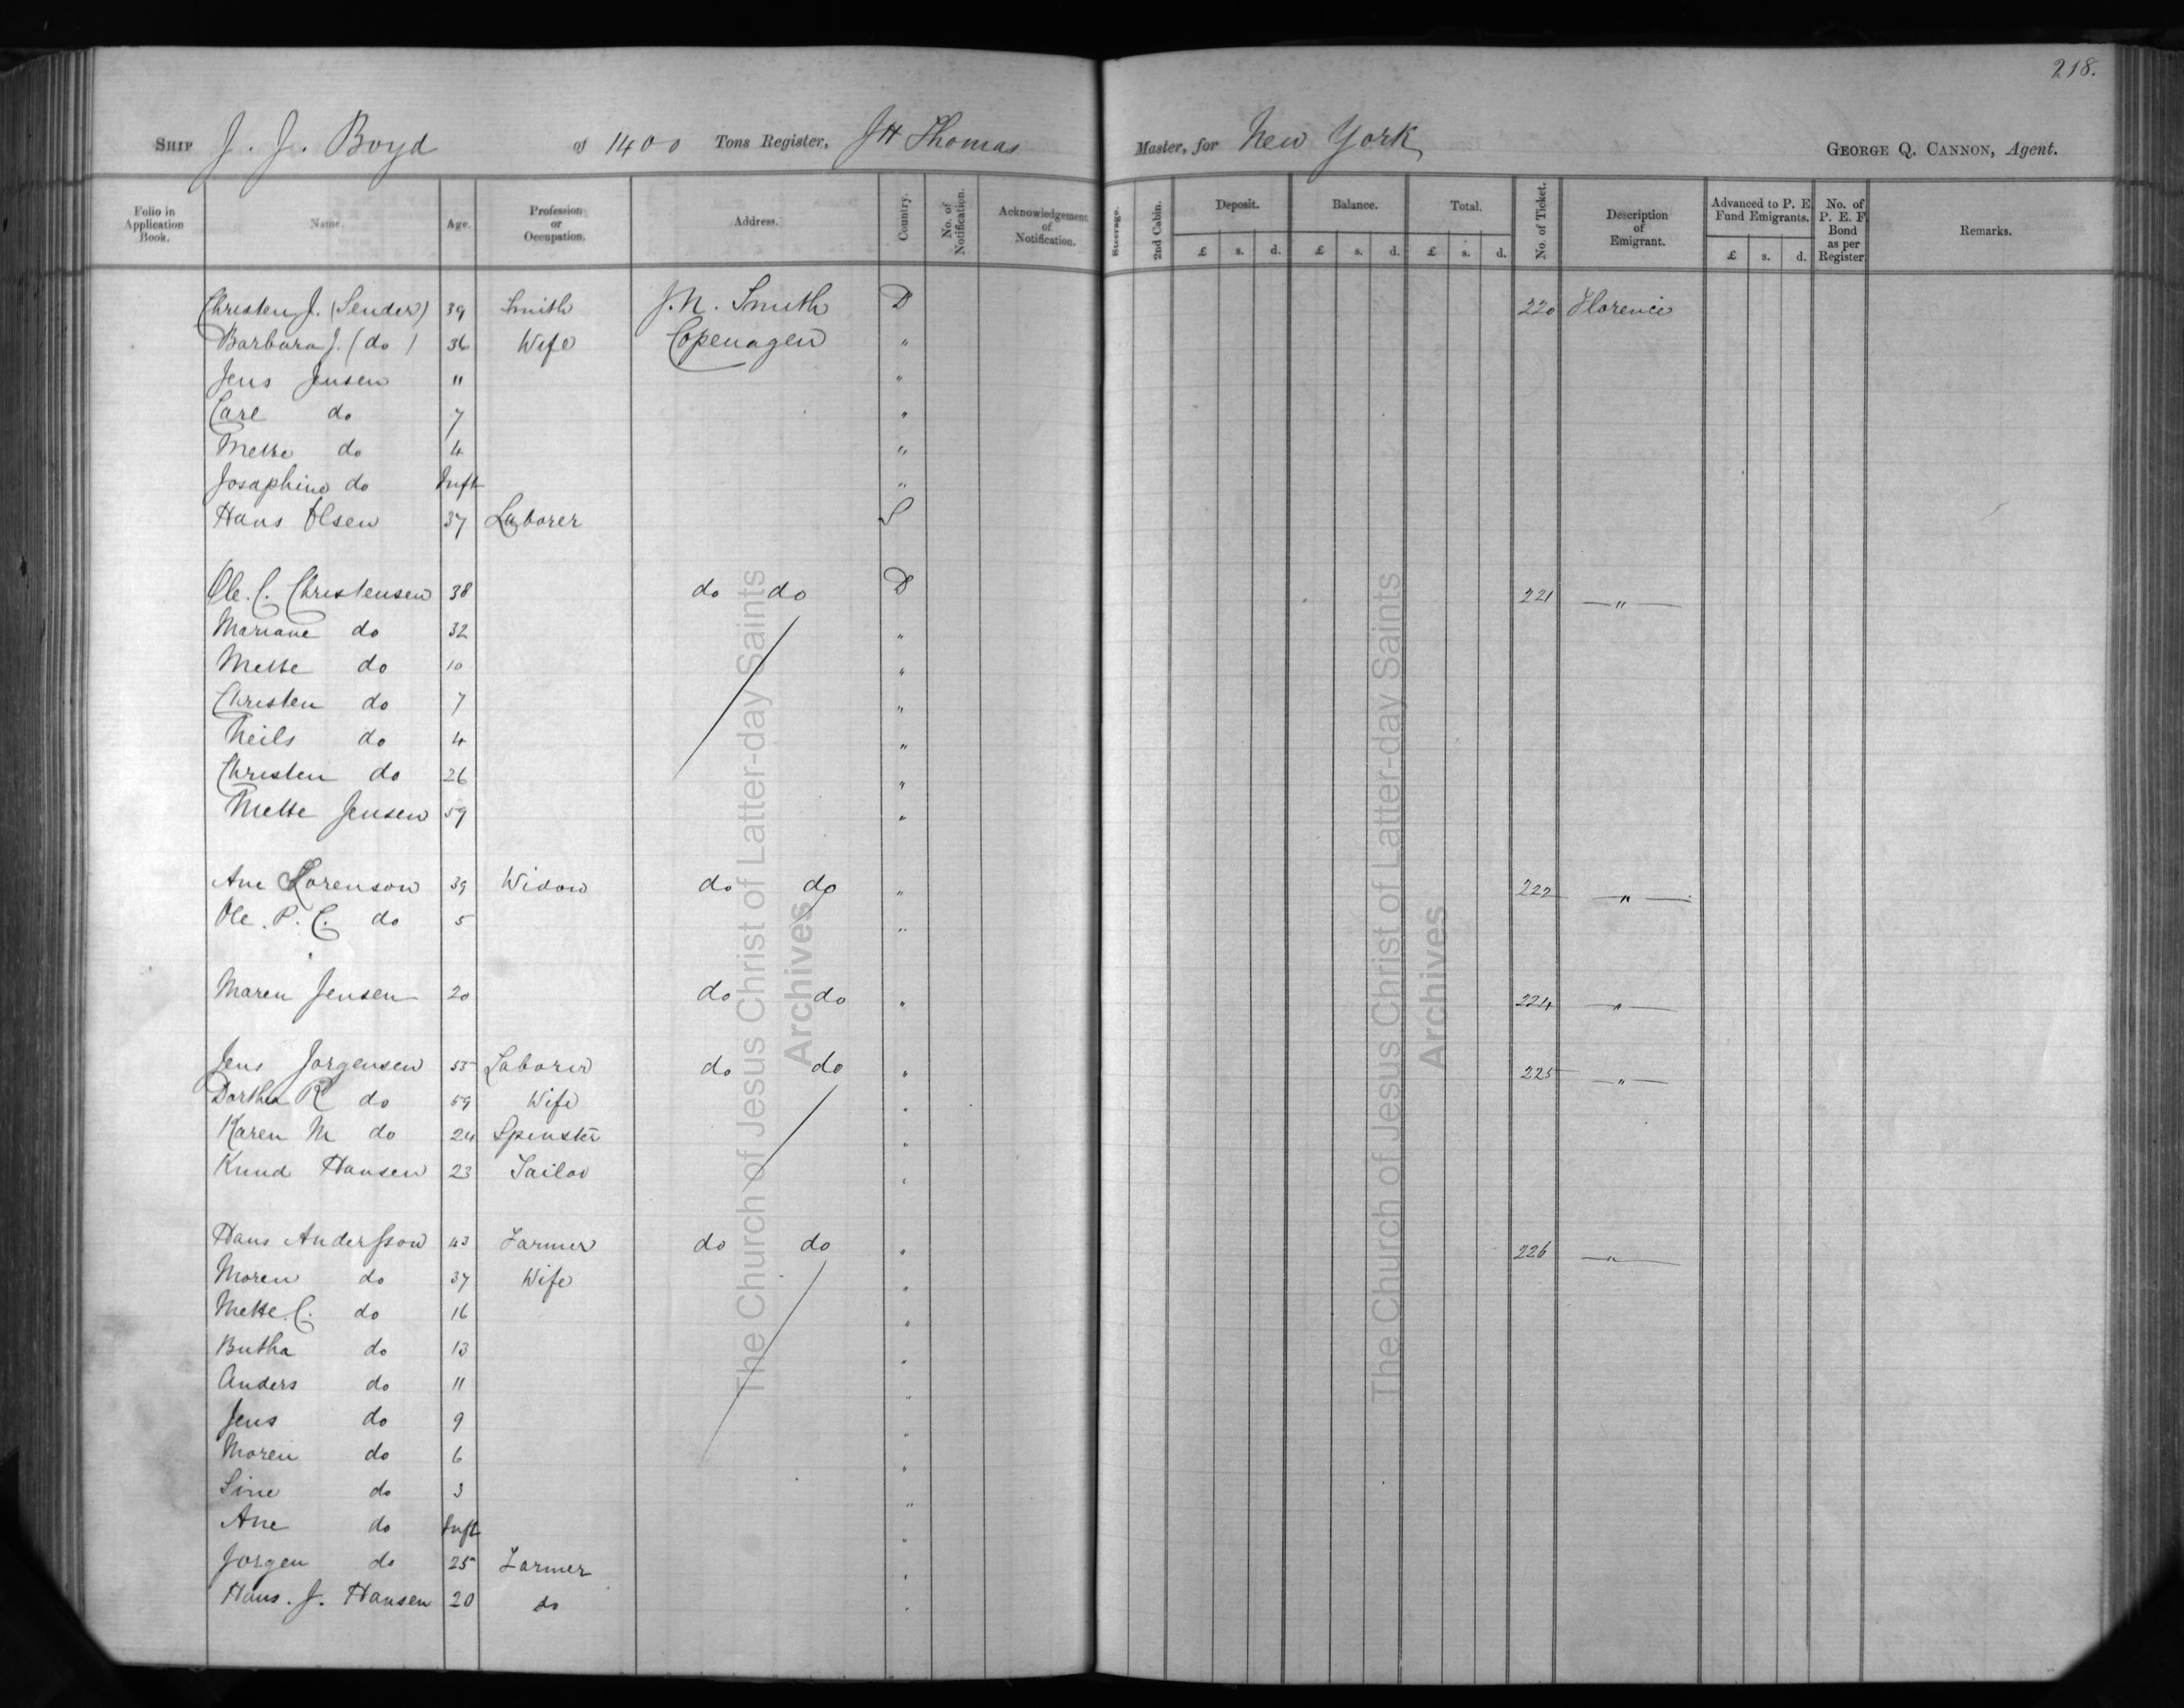 218.
SHIP J. J. Boyd of 1400 Tons Register, J H Thomas Master, for New York GEORGE Q. CANNON, Agent.
Folio in Application Book. Name. Age. Profession or Occupation. Address. Country. No. of Notification. Acknowledgement of Notification. Steerage. 2nd Cabin. Deposit. £ s. d. Balance. £ s. d. Total. £ s. d. No. of Ticket. Description of Emigrant. Advanced to P. E. Fund Emigrants. £ s. d. No. of P. E. F. Bond as per Register. Remarks.
Christen J. (Sender) 39 Smith J. N. Smith D 220 Florence
Barbara J. (do) 36 Wife Copenagen "
Jens Jensen 11 "
Carl do 7 "
Mette do 4 "
Josaphine do Inft "
Hans Olsen 37 Laborer S
Ole. C. Christensen 38 do do D 221 "
Mariane do 32 "
Mette do 10 "
Christen do 7 "
Neils do 4 "
Christen do 26 "
Mette Jensen 59 "
Ane Lorenson 39 Widow do do " 222 "
Ole. P. C. do 5 "
Maren Jensen 20 do do " 224 "
Jens Jorgensen 55 Laborer do do " 225 "
Dorthea R do 59 Wife "
Karen M do 24 Spinster "
Knud Hansen 23 Tailor "
Hans Andersson 43 Farmer do do " 226 "
Moren do 37 Wife "
Mette. C. do 16 "
Butha do 13 "
Anders do 11 "
Jens do 9 "
Moren do 6 "
Sine do 3 "
Ane do Inft "
Jorgen do 25 Farmer "
Hans. J. Hansen 20 do "
The Church of Jesus Christ of Latter-day Saints
Archives
The Church of Jesus Christ of Latter-day Saints
Archives